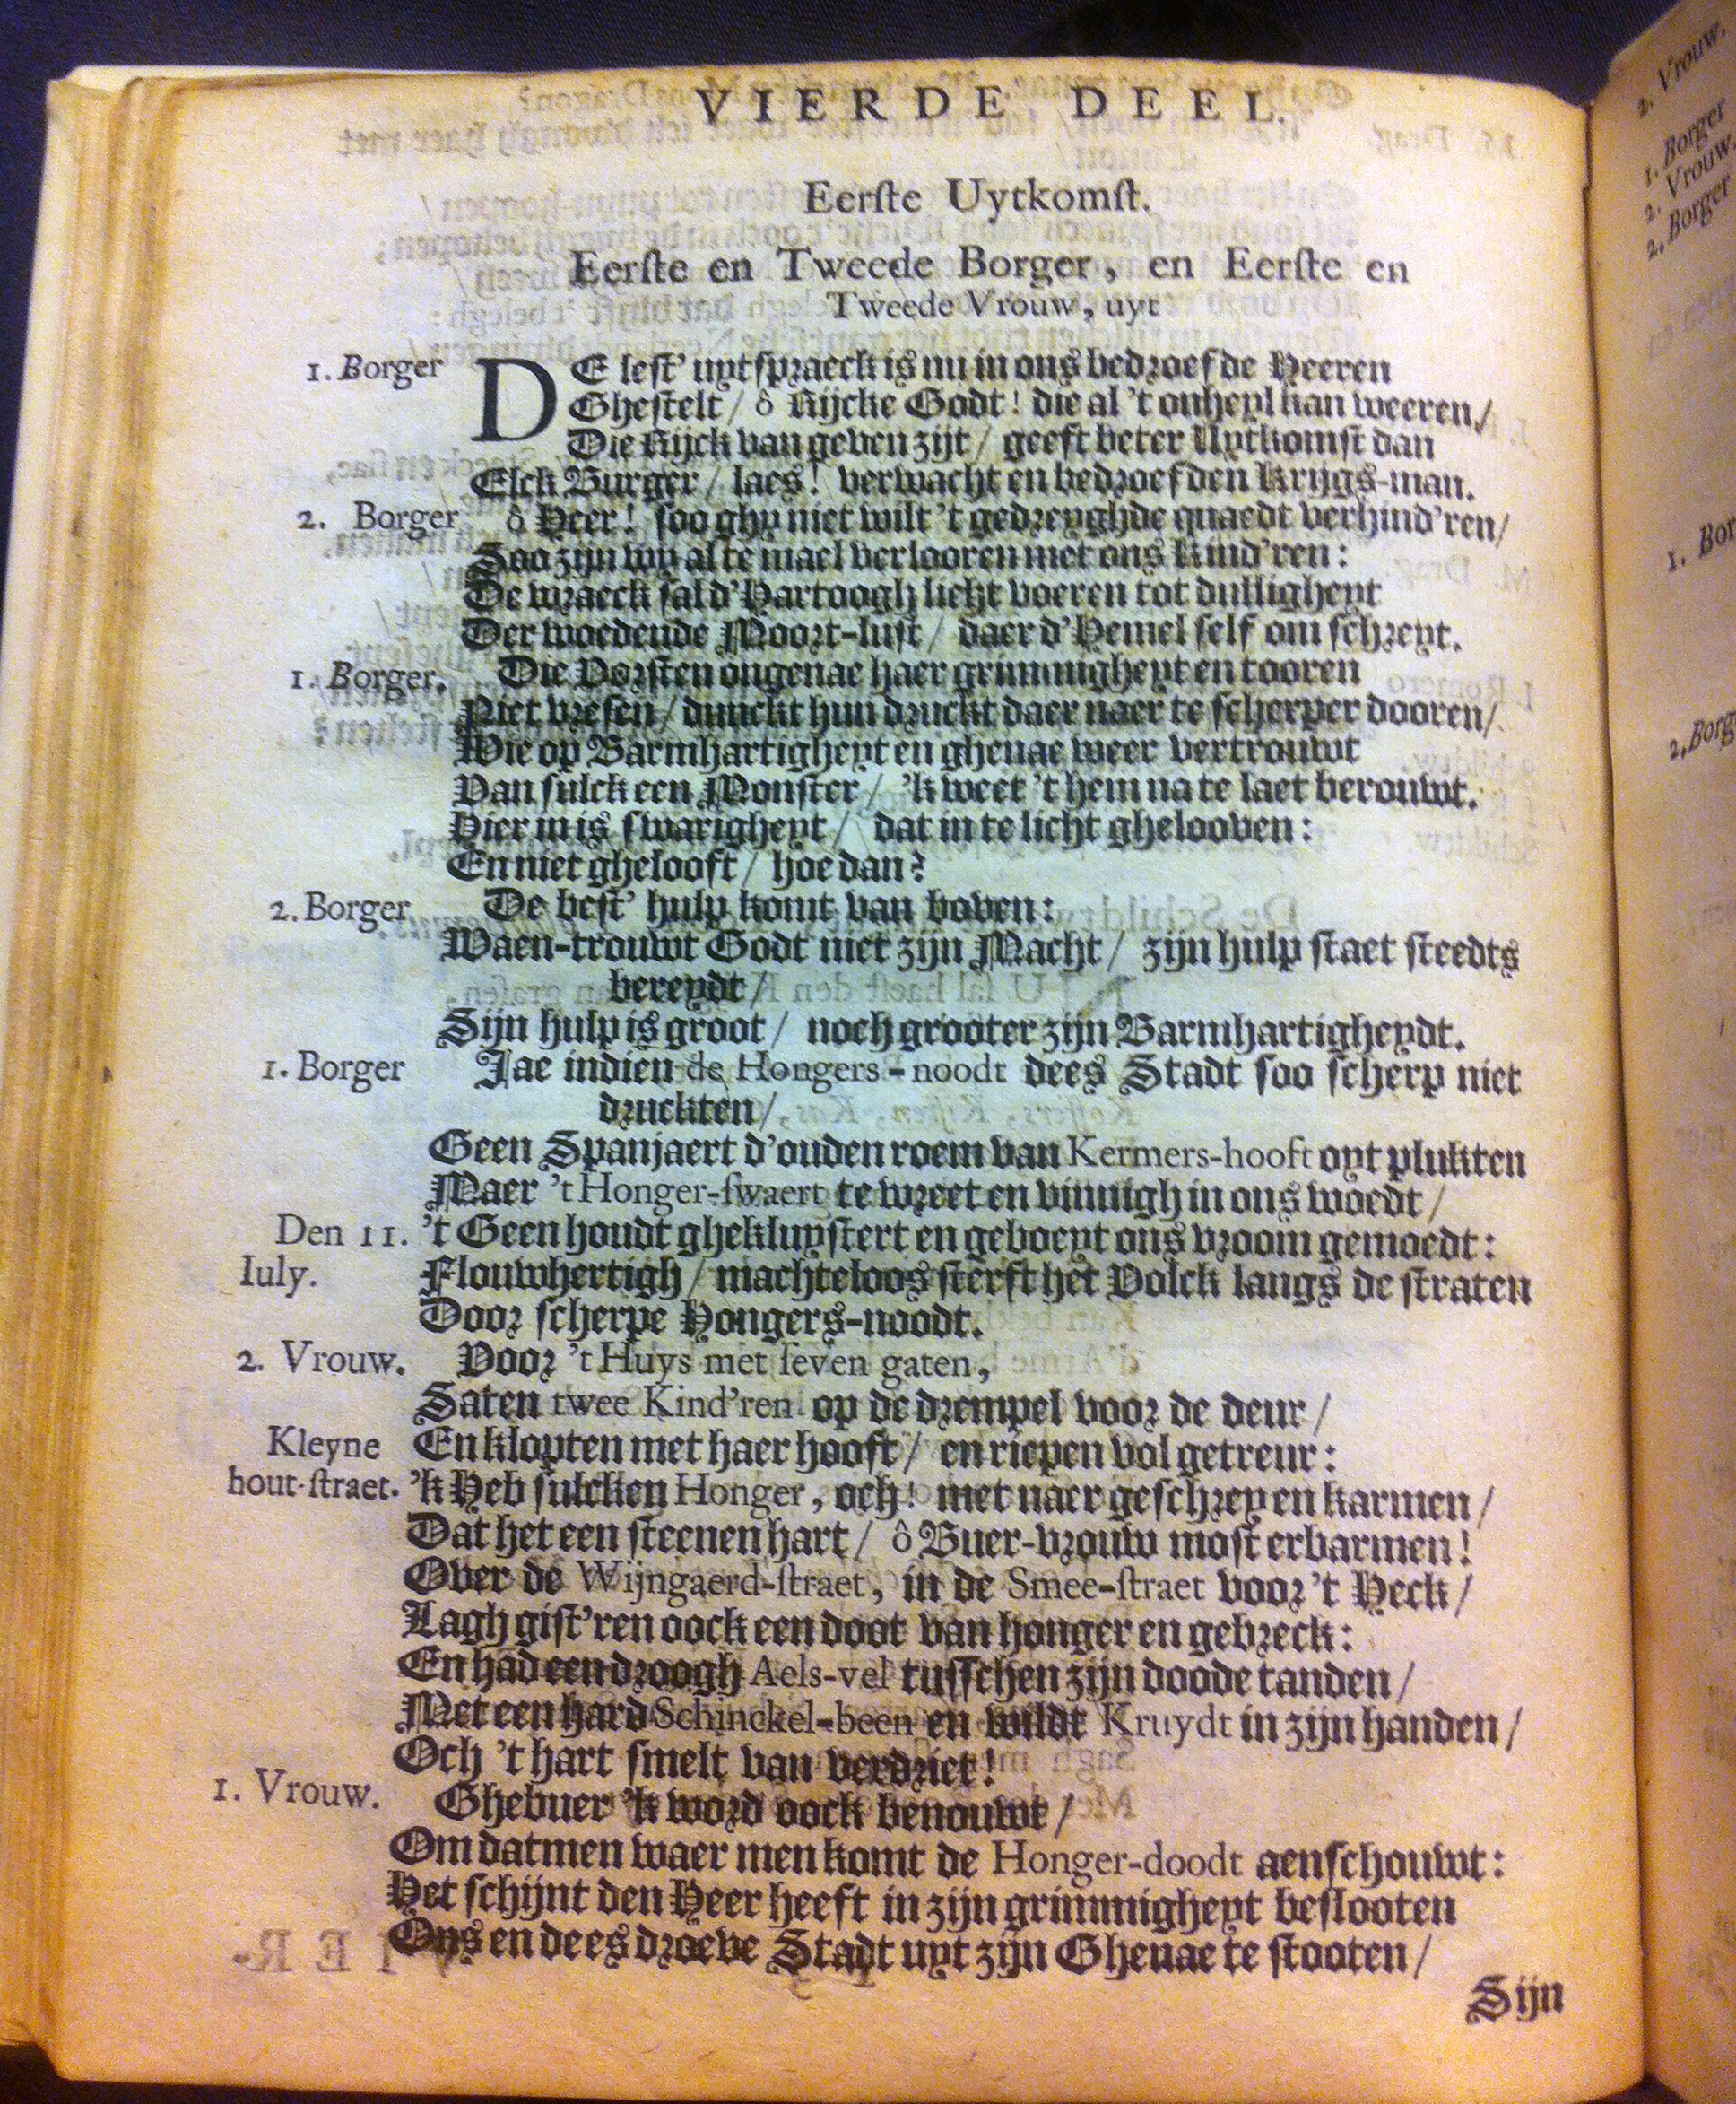 VIERDE DEEL.
Eerſte Uytkomſt.
Eerſte en Tweede Borger, en Eerſte en
Tweede Vrouw, uyt
1. Borger DE leſt' uytſpraeck is nu in ons bedroefde Heeren
Gheſtelt / ô Rijcke Godt! die al 't onheyl kan weeren /
Die Rijck van geven zijt / geeft beter Uytkomſt dan
Elck Burger / laes! verwacht en bedroefden Krijgs-man.
2. Borger ô Heer! ſoo ghy niet wilt 't gedreyghde quaedt verhind'ren /
Soo zijn wy al te mael verlooren met ons Kind'ren:
De wraeck ſal d'Hartoogh licht voeren tot dullighept
Der woedende Moort-luſt / daer d'Hemel ſelf om ſchreyt.
1. Borger. Die Vorſten ongenae haer grimmigheyt en tooren
Niet vreſen / dunckt hun druckt daer naer te ſcherper dooren /
Wie op Barmhartigheyt en ghenae weer vertrouwt
Van ſulck een Monſter / 'k weet 't hem na te laet berouwt.
Hier in is ſwarigheyt / dat in te licht ghelooven:
En niet ghelooft / hoe dan?
2. Borger De beſt' hulp komt van boven:
Waen-trouwt Godt niet zijn Macht / zijn hulp ſtaet ſteedts
bereydt /
Sijn hulp is groot / noch grooter zijn Barmhartigheydt.
1. Borger Jae indien de Hongers-noodt dees Stadt ſoo ſcherp niet
druckten /
Geen Spanjaert d'ouden roem van Kermers-hooft oyt plukten
Maer 't Honger-ſwaert te wreet en vinnigh in ons woedt /
Den 11. 't Geen houdt ghekluyſtert en geboeyt ons vroom gemoedt:
Iuly. Flouwhertigh / machteloos ſterft het Volck langs de ſtraten
Door ſcherpe Hongers-noodt.
2. Vrouw. Voor 't Huys met ſeven gaten,
Saten twee Kind'ren op de drempel voor de deur /
Kleyne En klopten met haer hooft / en riepen vol getreur:
hout-ſtraet. 'k Heb ſulcken Honger, och! met naer geſchrey en karmen /
Dat het een ſteenen hart / ô Buer-vrouw moſt erbarmen!
Over de Wijngaerd-ſtraet, in de Smee-ſtraet voor 't Heck /
Lagh giſt'ren oock een doot van honger en gebreck:
En had een droogh Aels-vel tuſſchen zijn doode tanden /
Met een hard Schinckel-been en wildt Kruydt in zijn handen /
Och 't hart ſmelt van verdriet!
1. Vrouw. Ghebuer 'k word oock benouwt /
Om datmen waer men komt de Honger-doodt aenſchouwt:
Het ſchijnt den Heer heeft in zijn grimmigheyt beſlooten
Ons en dees droeve Stadt uyt zijn Ghenae te ſtooten /
Sijn
2. Vrouw.
1. Borger
2. Vrouw.
2. Borger
1. Bor
2. Borg